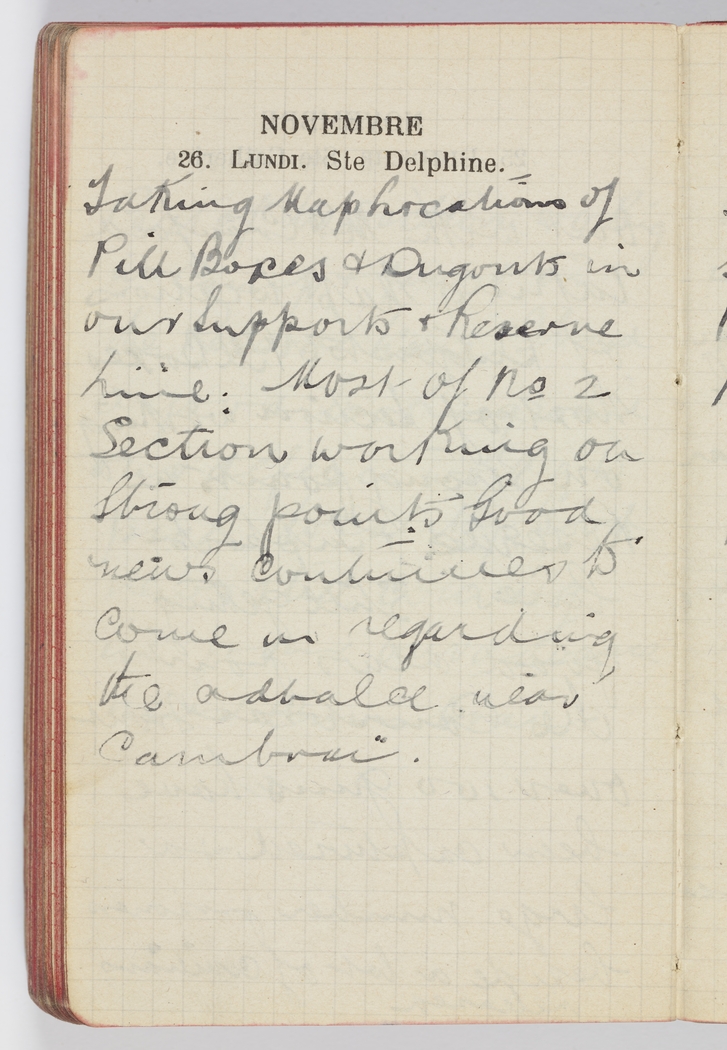 NOVEMBRE
26. LUNDI. Ste Delphine.
Taking Map Locations of
Pill Boxes & Dugouts in
our Supports & Reserve
Line. Most of No 2
Section working on
Strong points Good
news continues to
come in regarding
the advance near
Cambrai.